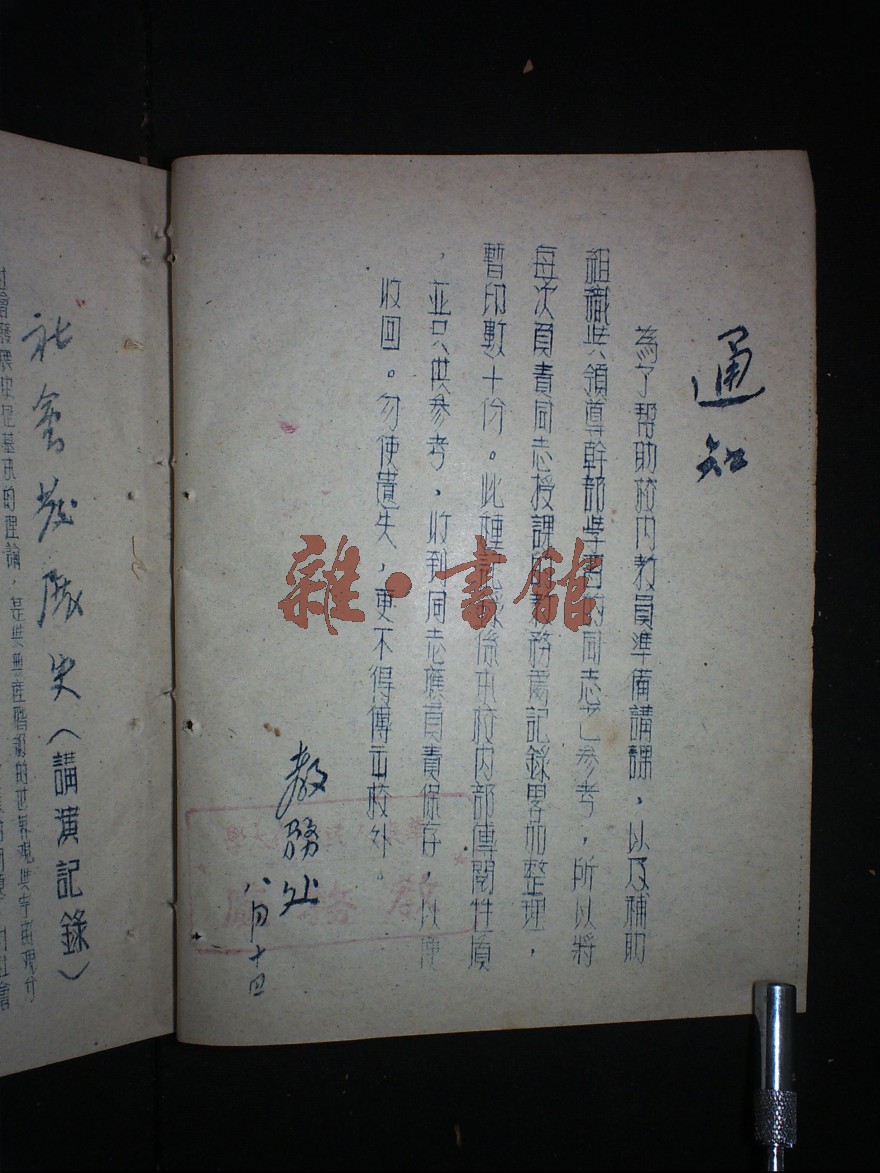 通知
為了帮助校内教員準備講課，以及補助
組織与領導幹部学習的同志参考，所以將
每次負責同志授課由教務處記錄畧加整理，
暫印數十份。此種記錄係本校内部傳閱性質
，並只供参考，收到同志應負責保存，以便
收回。勿使遺失，更不得傳至校外。
教務处
八月十四
教務處
雜·書館
社會发展史（講演記錄）
社會發展史是基本的理論，是無產階級的世界观